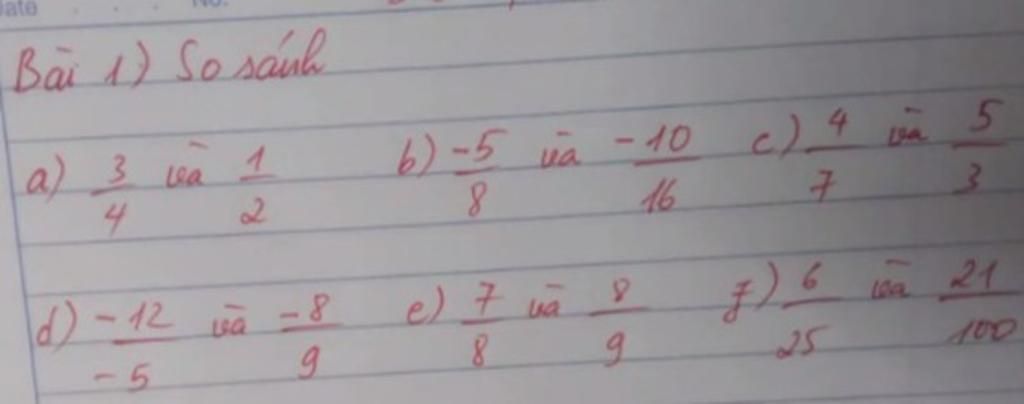 Date No.
Bài 1) So sánh
a) 3/4 và 1/2 b) -5/8 và -10/16 c) 4/7 và 5/3
d) -12/-5 và -8/9 e) 7/8 và 8/9 f) 6/25 và 21/100